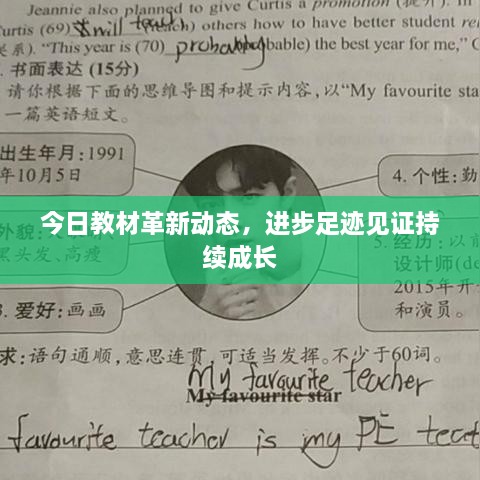 Jeannie also planned to give Curtis a promotion (提升). In
Curtis (69) will teach (teach) others how to have better student rel
关系). "This year is (70) probably (probable) the best year for me," C
. 书面表达 (15分)
请你根据下面的思维导图和提示内容,以“My favourite sta
一篇英语短文。
出生年月:1991
年10月5日
4. 个性:勤
今日教材革新动态，进步足迹见证持
续成长
外貌:
黑头发、高瘦
5. 经历:以前
设计师(de
2015年开
和演员。
3. 爱好:画画
求:语句通顺,意思连贯,可适当发挥。不少于60词。
My favourite teacher
My favourite star
favourite teacher is my PE teac